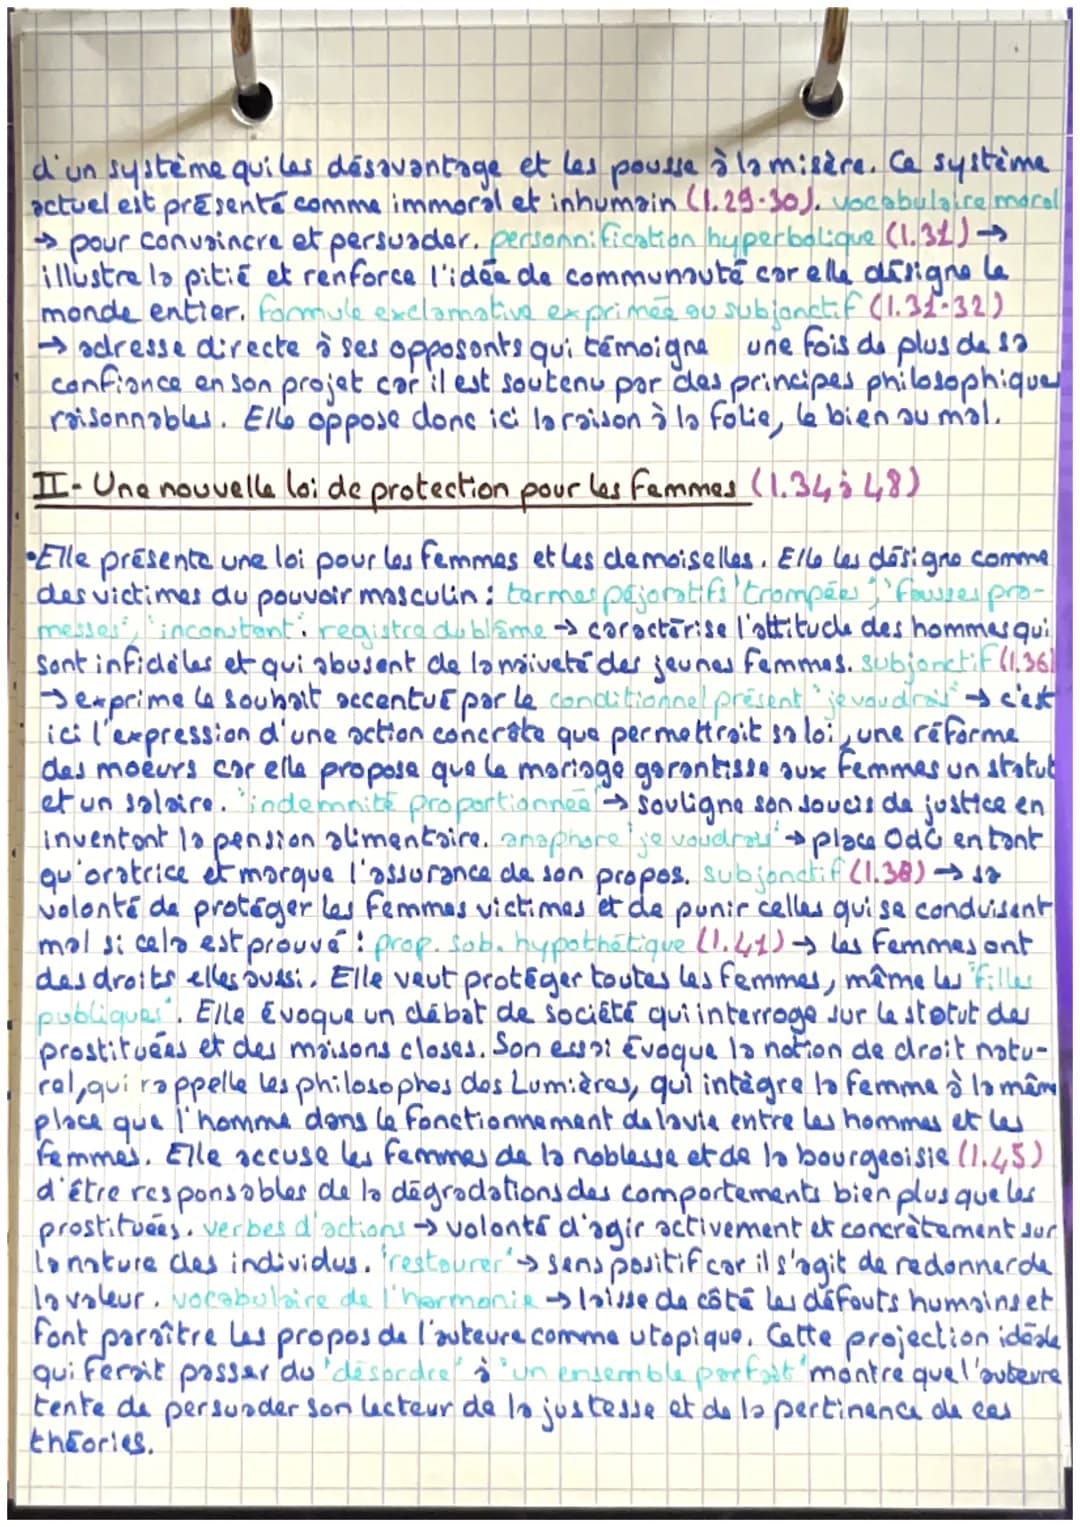 d'un système qui les désavantage et les pousse à la misère. Ce système
actuel est présenté comme immoral et inhumain (l.29-30). vocabulaire moral
→ pour convaincre et persuader. personnification hyperbolique (l.31) →
illustre la pitié et renforce l'idée de communauté car elle désigne le
monde entier. formule exclamative exprimée au subjonctif (l.31-32)
→ adresse directe à ses opposants qui témoigne une fois de plus de sa
confiance en son projet car il est soutenu par des principes philosophiques
raisonnables. Elle oppose donc ici la raison à la folie, le bien au mal.
II- Une nouvelle loi de protection pour les femmes (l.34 à 48)
•Elle présente une loi pour les femmes et les demoiselles. Elle les désigne comme
des victimes du pouvoir masculin : termes péjoratifs "trompées", "fausses pro-
messes", "inconstant". registre du blâme → caractérise l'attitude des hommes qui
sont infidèles et qui abusent de la naïveté des jeunes femmes. subjonctif (l.36)
→ exprime le souhait accentué par le conditionnel présent "je voudrais" → c'est
ici l'expression d'une action concrète que permettrait sa loi, une réforme
des moeurs car elle propose que le mariage garantisse aux femmes un statut
et un salaire. "indemnité proportionnée" → souligne son soucis de justice en
inventant la pension alimentaire. anaphore "je voudrais" → place OdG en tant
qu'oratrice et marque l'assurance de son propos. subjonctif (l.38) → sa
volonté de protéger les femmes victimes et de punir celles qui se conduisent
mal si cela est prouvé : prop. sub. hypothétique (l.41) → les femmes ont
des droits elles aussi. Elle veut protéger toutes les femmes, même les "filles
publiques". Elle évoque un débat de société qui interroge sur le statut des
prostituées et des maisons closes. Son essai évoque la notion de droit natu-
rel, qui rappelle les philosophes des Lumières, qui intègre la femme à la même
place que l'homme dans le fonctionnement de la vie entre les hommes et les
femmes. Elle accuse les femmes de la noblesse et de la bourgeoisie (l.45)
d'être responsables de la dégradations des comportements bien plus que les
prostituées. verbes d'actions → volonté d'agir activement et concrètement sur
la nature des individus. "restaurer" → sens positif car il s'agit de redonner de
la valeur. vocabulaire de l'harmonie → laisse de côté les défauts humains et
font paraître les propos de l'auteure comme utopique. Cette projection idéale
qui ferait passer du "désordre" à "un ensemble parfait" montre que l'auteure
tente de persuader son lecteur de la justesse et de la pertinence de ces
théories.